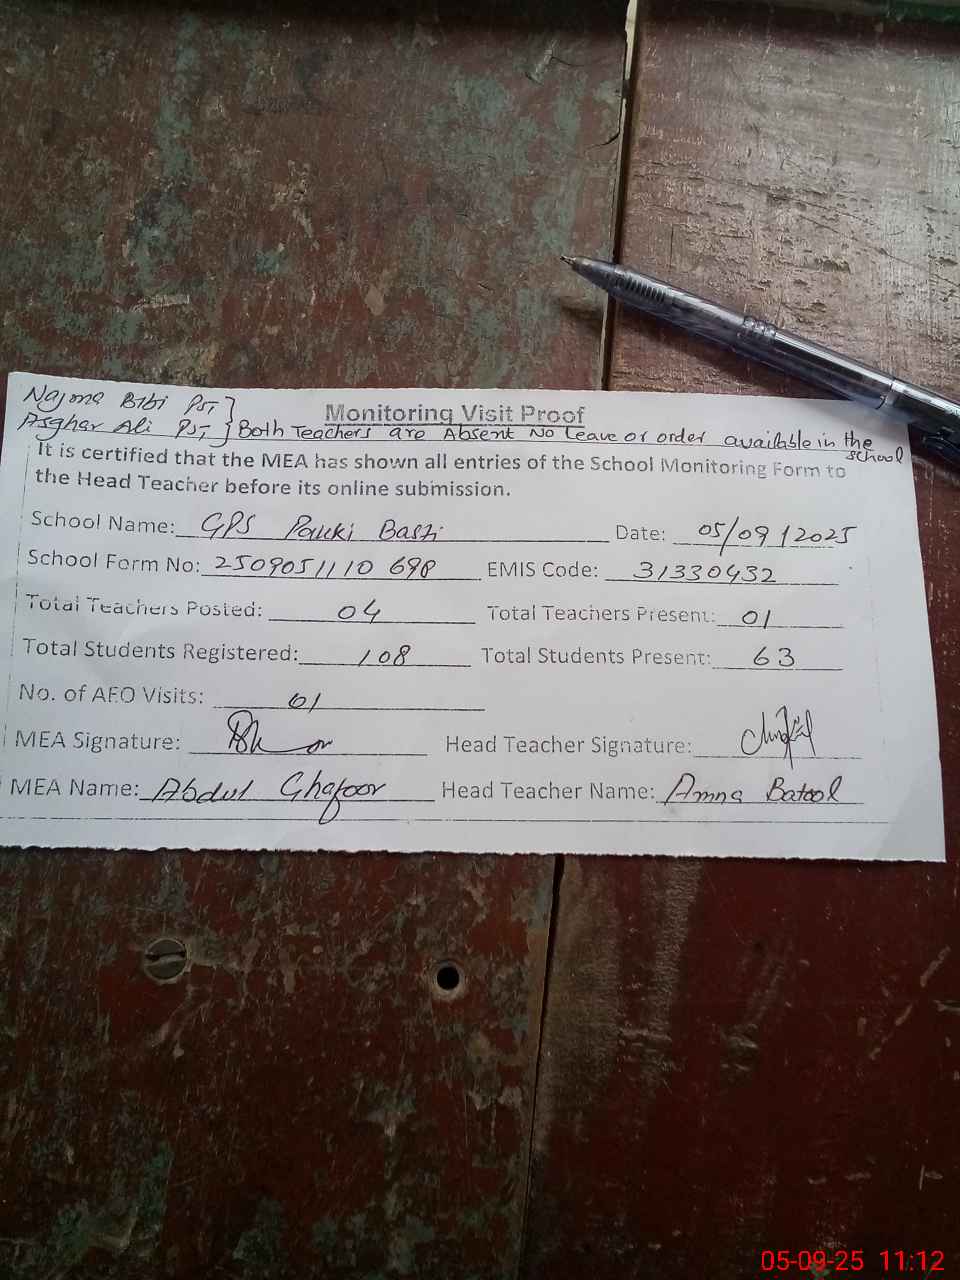 Najma Bibi PST
Monitoring Visit Proof
Asghar Ali PST } Both Teachers are Absent No Leave or order available in the school
It is certified that the MEA has shown all entries of the School Monitoring Form to
the Head Teacher before its online submission.
School Name: GPS Pauki Basti Date: 05/09/2025
School Form No: 2509051110 698 EMIS Code: 31330432
Total Teachers Posted: 04 Total Teachers Present: 01
Total Students Registered: 108 Total Students Present: 63
No. of AEO Visits: 01
MEA Signature: Head Teacher Signature:
MEA Name: Abdul Ghafoor Head Teacher Name: Amna Batool
05-09-25 11:12